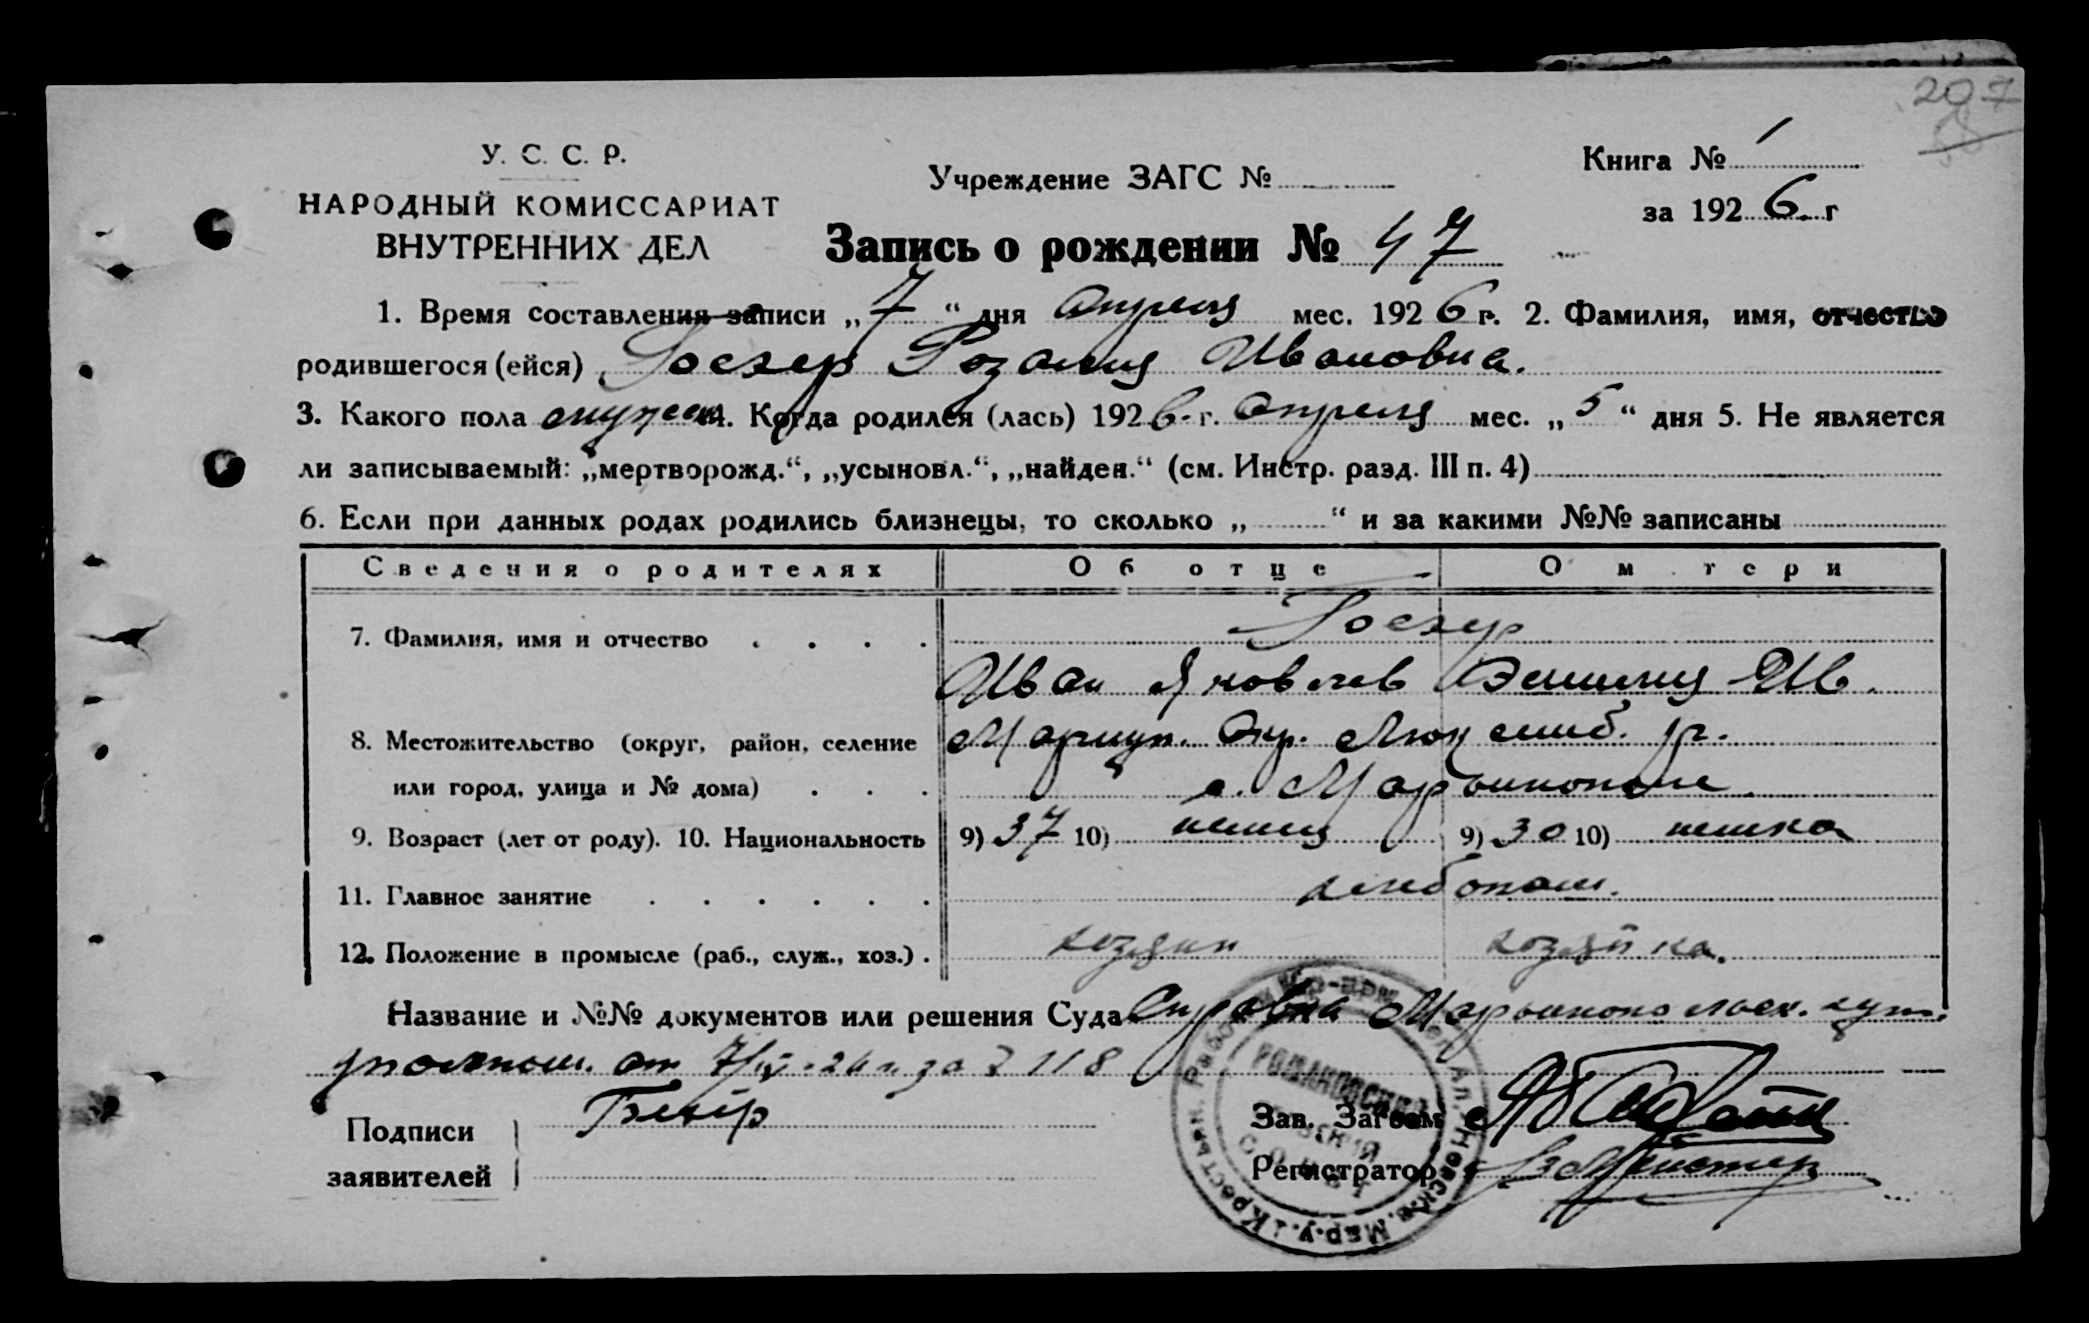 207
У. С. С. Р.
НАРОДНЫЙ КОМИССАРИАТ
ВНУТРЕННИХ ДЕЛ
Учреждение ЗАГС №
Книга № 1
за 1926 г
Запись о рождении № 47
1. Время составления записи „7“ дня Апреля мес. 1926 г. 2. Фамилия, имя, отчество
родившегося (ейся) Розалия Ивановна.
3. Какого пола 4. Когда родился (лась) 1926 г. Апреля мес. „5“ дня 5. Не является
ли записываемый: „мертворожд.“, „усыновл.“, „найден.“ (см. Инстр. разд. III п. 4)
6. Если при данных родах родились близнецы, то сколько „ “ и за какими №№ записаны
Сведения о родителях Об отце О м тери
7. Фамилия, имя и отчество
Иван Яковлев Эмилия Ив.
8. Местожительство (округ, район, селение Мариуп. Окр. Люксемб. р.
или город, улица и № дома) с. Марьинополь
9. Возраст (лет от роду). 10. Национальность 9) 37 10) немец 9) 30 10) немка
11. Главное занятие хлебопаш.
12. Положение в промысле (раб., служ., хоз.) хозяин хозяйка.
Название и №№ документов или решения Суда Справка Марьинопольск.
от 7/IV-26 г за № 118
Подписи
заявителей
Зав. Загсом
Регистратор